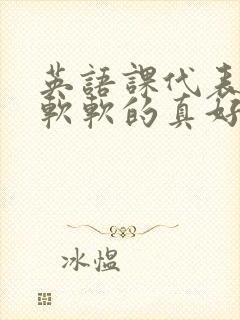 英語課代表
軟軟的真好
冰愠